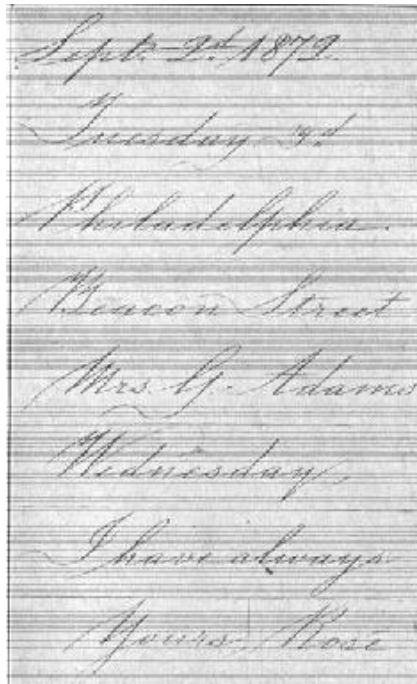 Sept. 2d. 1872.
Tuesday 3d
Philadelphia.
Beacon Street
Mrs. G. Adams
Wednesday,
I have always
Yours, Rose